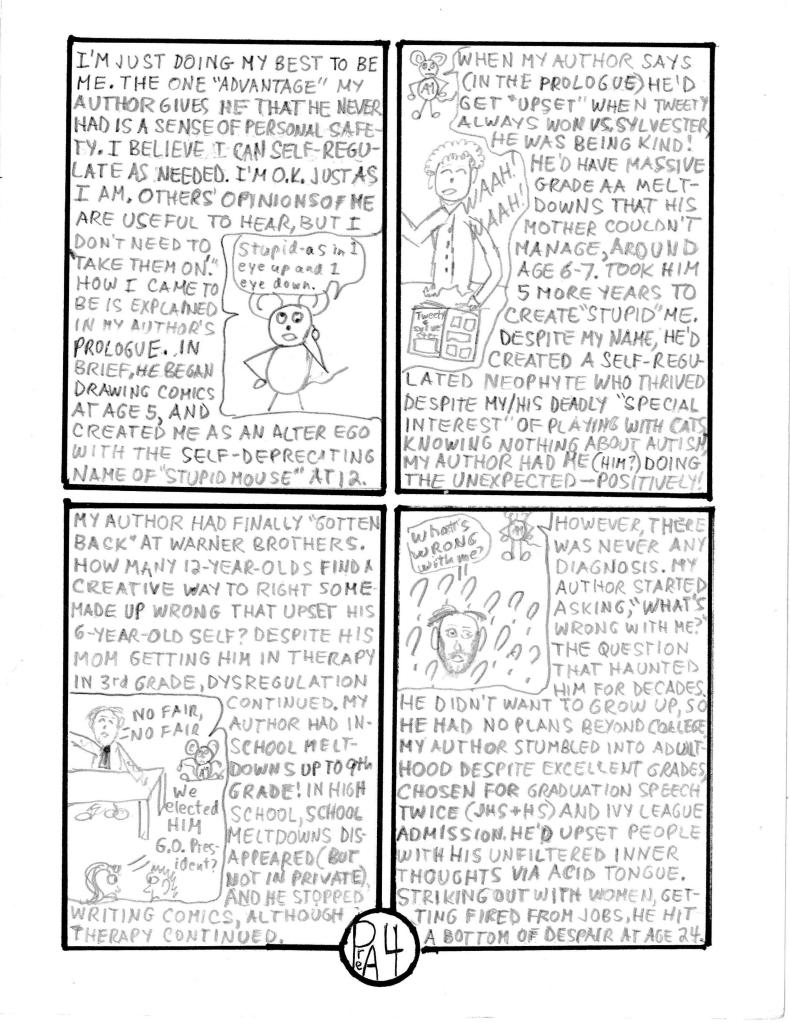 I'M JUST DOING MY BEST TO BE
ME. THE ONE "ADVANTAGE" MY
AUTHOR GIVES ME THAT HE NEVER
HAD IS A SENSE OF PERSONAL SAFE-
TY. I BELIEVE I CAN SELF-REGU-
LATE AS NEEDED. I'M O.K. JUST AS
I AM. OTHERS' OPINIONS OF ME
ARE USEFUL TO HEAR, BUT I
DON'T NEED TO
"TAKE THEM ON."
HOW I CAME TO
BE IS EXPLAINED
IN MY AUTHOR'S
PROLOGUE. IN
BRIEF, HE BEGAN
DRAWING COMICS
AT AGE 5, AND
CREATED ME AS AN ALTER EGO
WITH THE SELF-DEPRECITING
NAME OF "STUPID MOUSE" AT 12.
Stupid-as in 1
eye up and 1
eye down.
WHEN MY AUTHOR SAYS
(IN THE PROLOGUE) HE'D
GET "UPSET" WHEN TWEETY
ALWAYS WON VS. SYLVESTER,
HE WAS BEING KIND!
HE'D HAVE MASSIVE
GRADE AA MELT-
DOWNS THAT HIS
MOTHER COULDN'T
MANAGE, AROUND
AGE 6-7. TOOK HIM
5 MORE YEARS TO
CREATE "STUPID" ME.
DESPITE MY NAME, HE'D
CREATED A SELF-REGU-
LATED NEOPHYTE WHO THRIVED
DESPITE MY/HIS DEADLY "SPECIAL
INTEREST" OF PLAYING WITH CATS.
KNOWING NOTHING ABOUT AUTISM,
MY AUTHOR HAD ME (HIM?) DOING
THE UNEXPECTED—POSITIVELY!
WAAH!
WAAH!
Tweety
&
Sylve
ster
MY AUTHOR HAD FINALLY "GOTTEN
BACK" AT WARNER BROTHERS.
HOW MANY 12-YEAR-OLDS FIND A
CREATIVE WAY TO RIGHT SOME
MADE UP WRONG THAT UPSET HIS
6-YEAR-OLD SELF? DESPITE HIS
MOM GETTING HIM IN THERAPY
IN 3rd GRADE, DYSREGULATION
CONTINUED. MY
AUTHOR HAD IN-
SCHOOL MELT-
DOWNS UP TO 9th
GRADE! IN HIGH
SCHOOL, SCHOOL
MELTDOWNS DIS-
APPEARED (BUT
NOT IN PRIVATE),
AND HE STOPPED
WRITING COMICS, ALTHOUGH
THERAPY CONTINUED.
NO FAIR,
NO FAIR
We
elected
HIM
G.O. Pres-
ident?
What's
WRONG
with me?
HOWEVER, THERE
WAS NEVER ANY
DIAGNOSIS. MY
AUTHOR STARTED
ASKING, "WHAT'S
WRONG WITH ME?"
THE QUESTION
THAT HAUNTED
HIM FOR DECADES.
HE DIDN'T WANT TO GROW UP, SO
HE HAD NO PLANS BEYOND COLLEGE.
MY AUTHOR STUMBLED INTO ADULT-
HOOD DESPITE EXCELLENT GRADES,
CHOSEN FOR GRADUATION SPEECH
TWICE (JHS+HS) AND IVY LEAGUE
ADMISSION. HE'D UPSET PEOPLE
WITH HIS UNFILTERED INNER
THOUGHTS VIA ACID TONGUE.
STRIKING OUT WITH WOMEN, GET-
TING FIRED FROM JOBS, HE HIT
A BOTTOM OF DESPAIR AT AGE 24.
PreA4